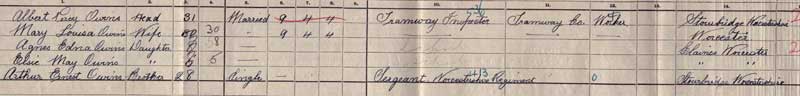 Albert Percy Owins Head 31 Married 9 4 4 Tramway Inspector Tramway Co. Worker Stourbridge Worcestershire
Mary Louisa Owins Wife 30 " 9 4 4 Worcester
Agnes Edna Owins Daughter 8 Worcester
Elsie May Owins " 5 "
Arthur Ernest Owins Brother 28 Single Sergeant Worcestershire Regiment 0 Stourbridge Worcestershire